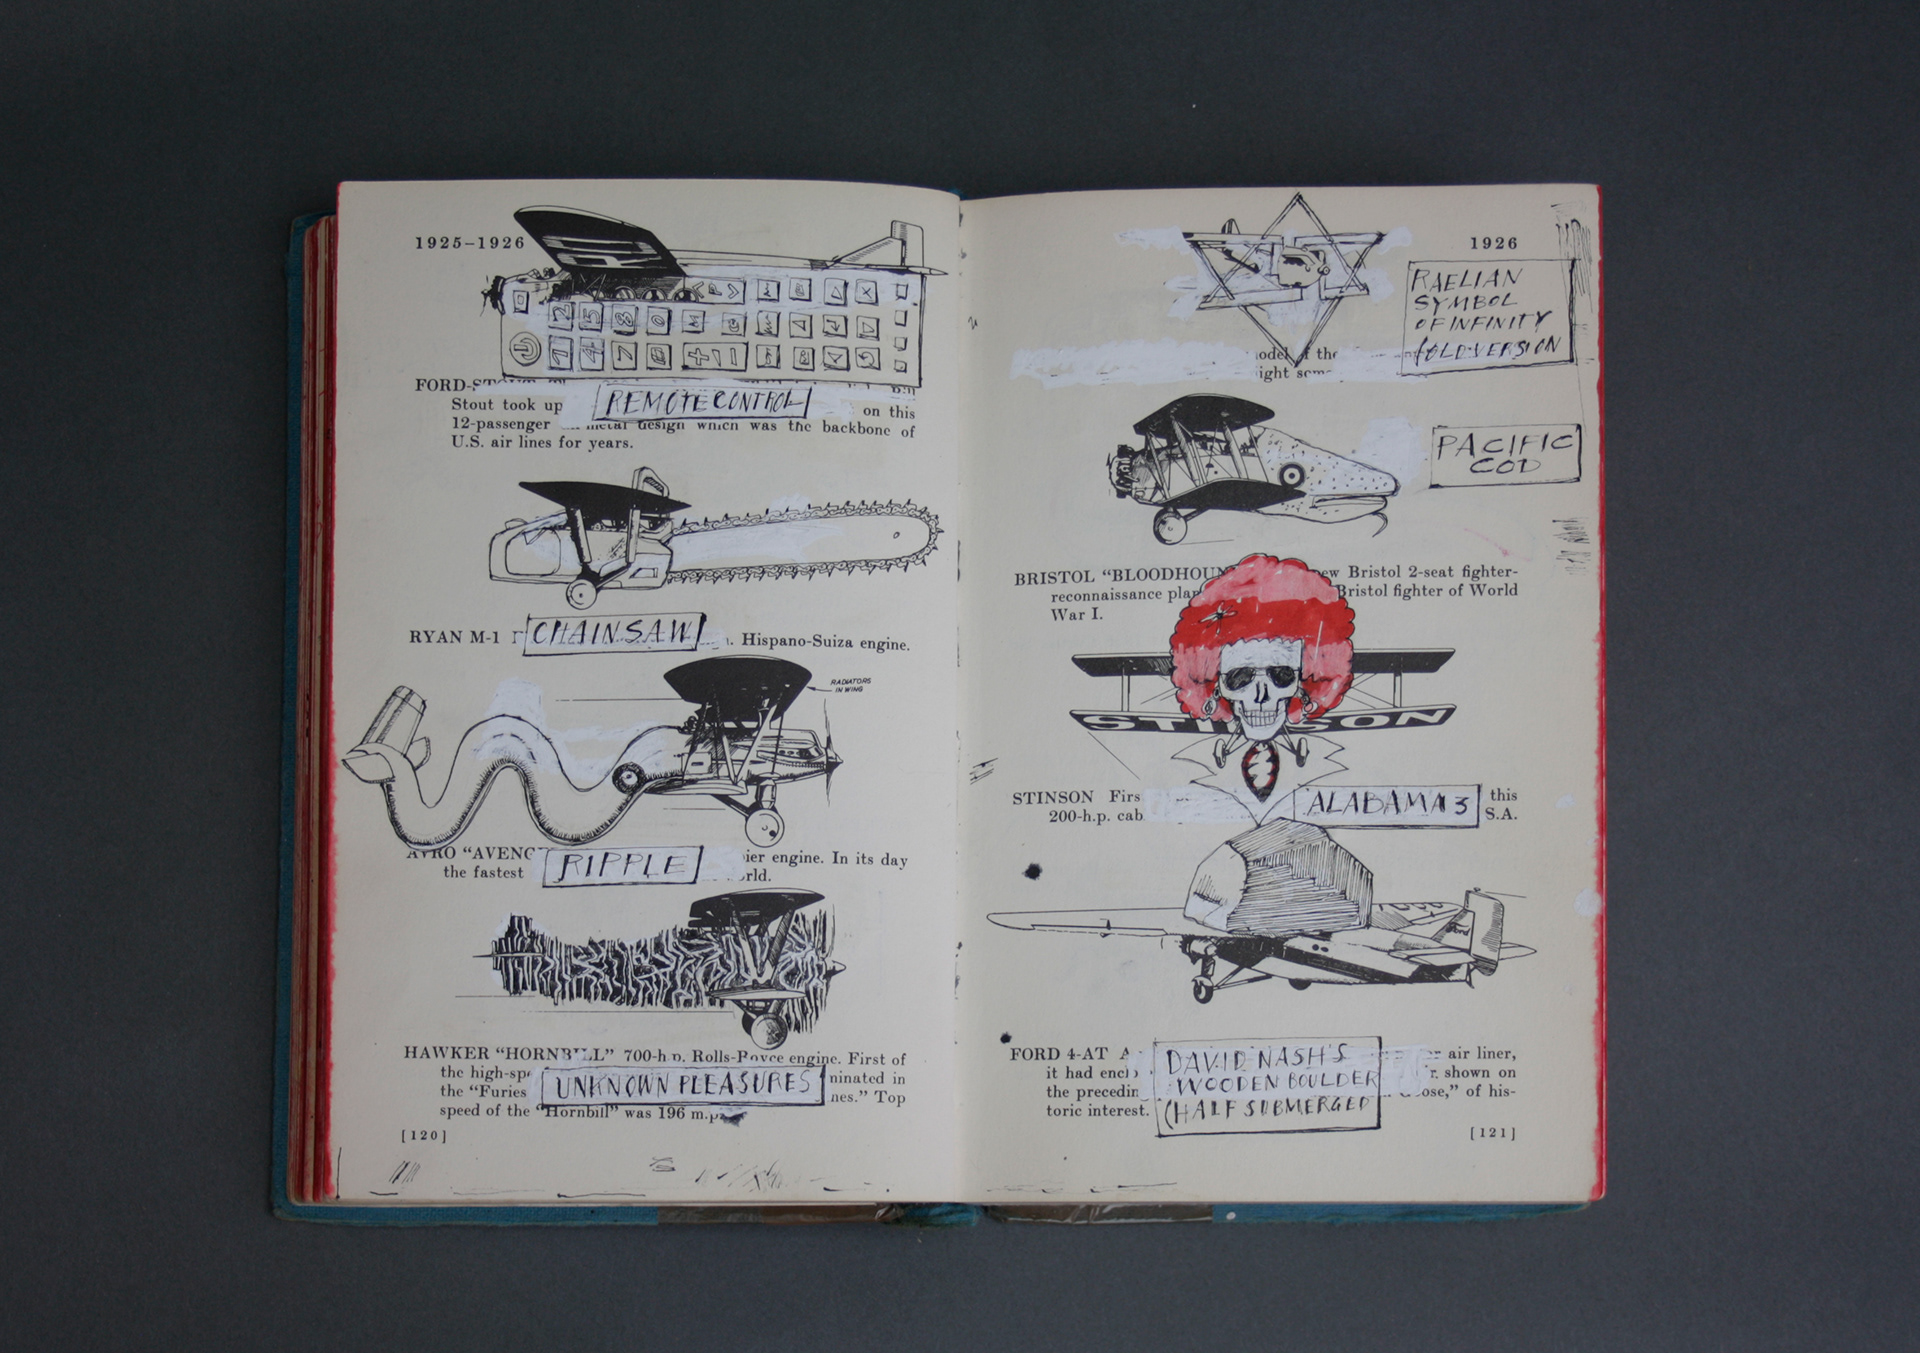 1925–1926
FORD-
REMOTE CONTROL
Stout took up on this
12-passenger metal design which was the backbone of
U.S. air lines for years.
CHAINSAW
RYAN M-1 Hispano-Suiza engine.
RADIATORS
IN WING
AVRO "AVENG engine. In its day
RIPPLE
the fastest
HAWKER "HORNBILL" 700-h.p. Rolls-Royce engine. First of
the
UNKNOWN PLEASURES
the "Furies nes." Top
speed of the "Hornbill" was 196
[120]
1926
RAELIAN
SYMBOL
OF INFINITY
(OLD VERSION
model of the
PACIFIC
COD
BRISTOL "BLOODHOUN new Bristol 2-seat fighter-
reconnaissance Bristol fighter of World
War I.
STINSON
STINSON this
ALABAMA 3
200-h.p. S.A.
Ford
FORD 4-AT air liner,
DAVID NASH'S
WOODEN BOULDER
(HALF SUBMERGED
it had shown on
the of his-
toric interest.
[121]